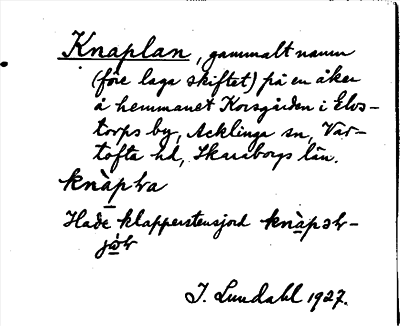 Knaplan, gammalt namn
(före laga skiftet) på en åker
å hemmanet Korsgården i Elvs-
torps by, Acklinga sn, Var-
tofta hd, Skaraborgs län.
knàpɫra
Hade klapperstensjord knàpəɫr-
jàɫr
J. Lundahl 1927.